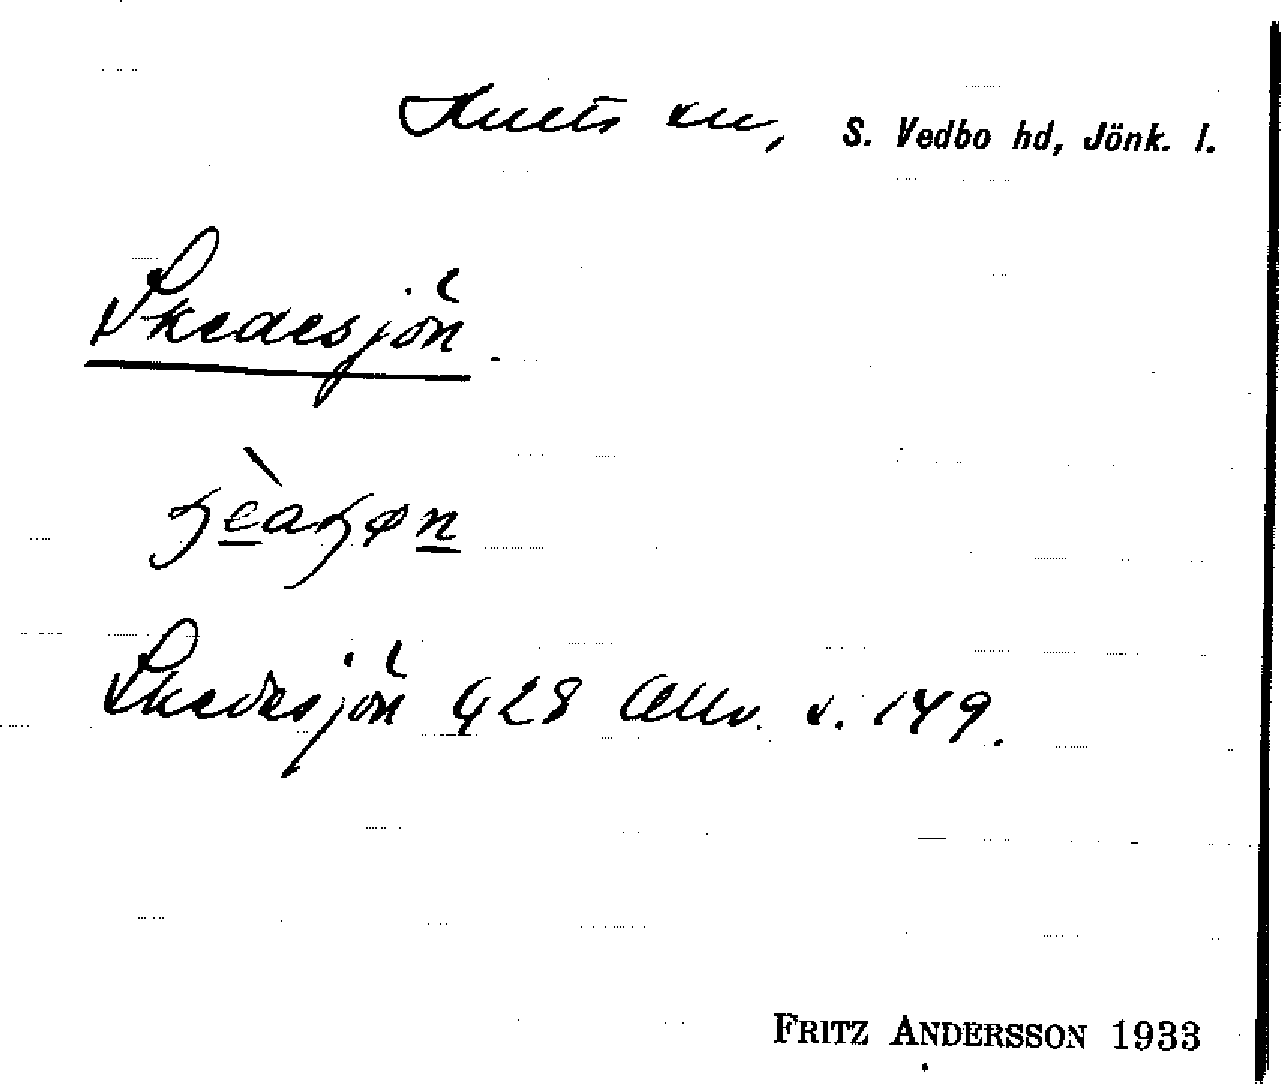 Hults sn, S. Vedbo hd, Jönk. l.
Skedesjön.
Skedesjön G 28 Allm. v. 149.
FRITZ ANDERSSON 1933